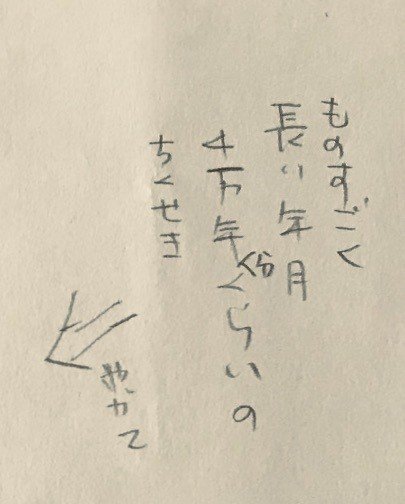 ものすごく
長い年月
4万年くらいの
分
ちくせき
やがて